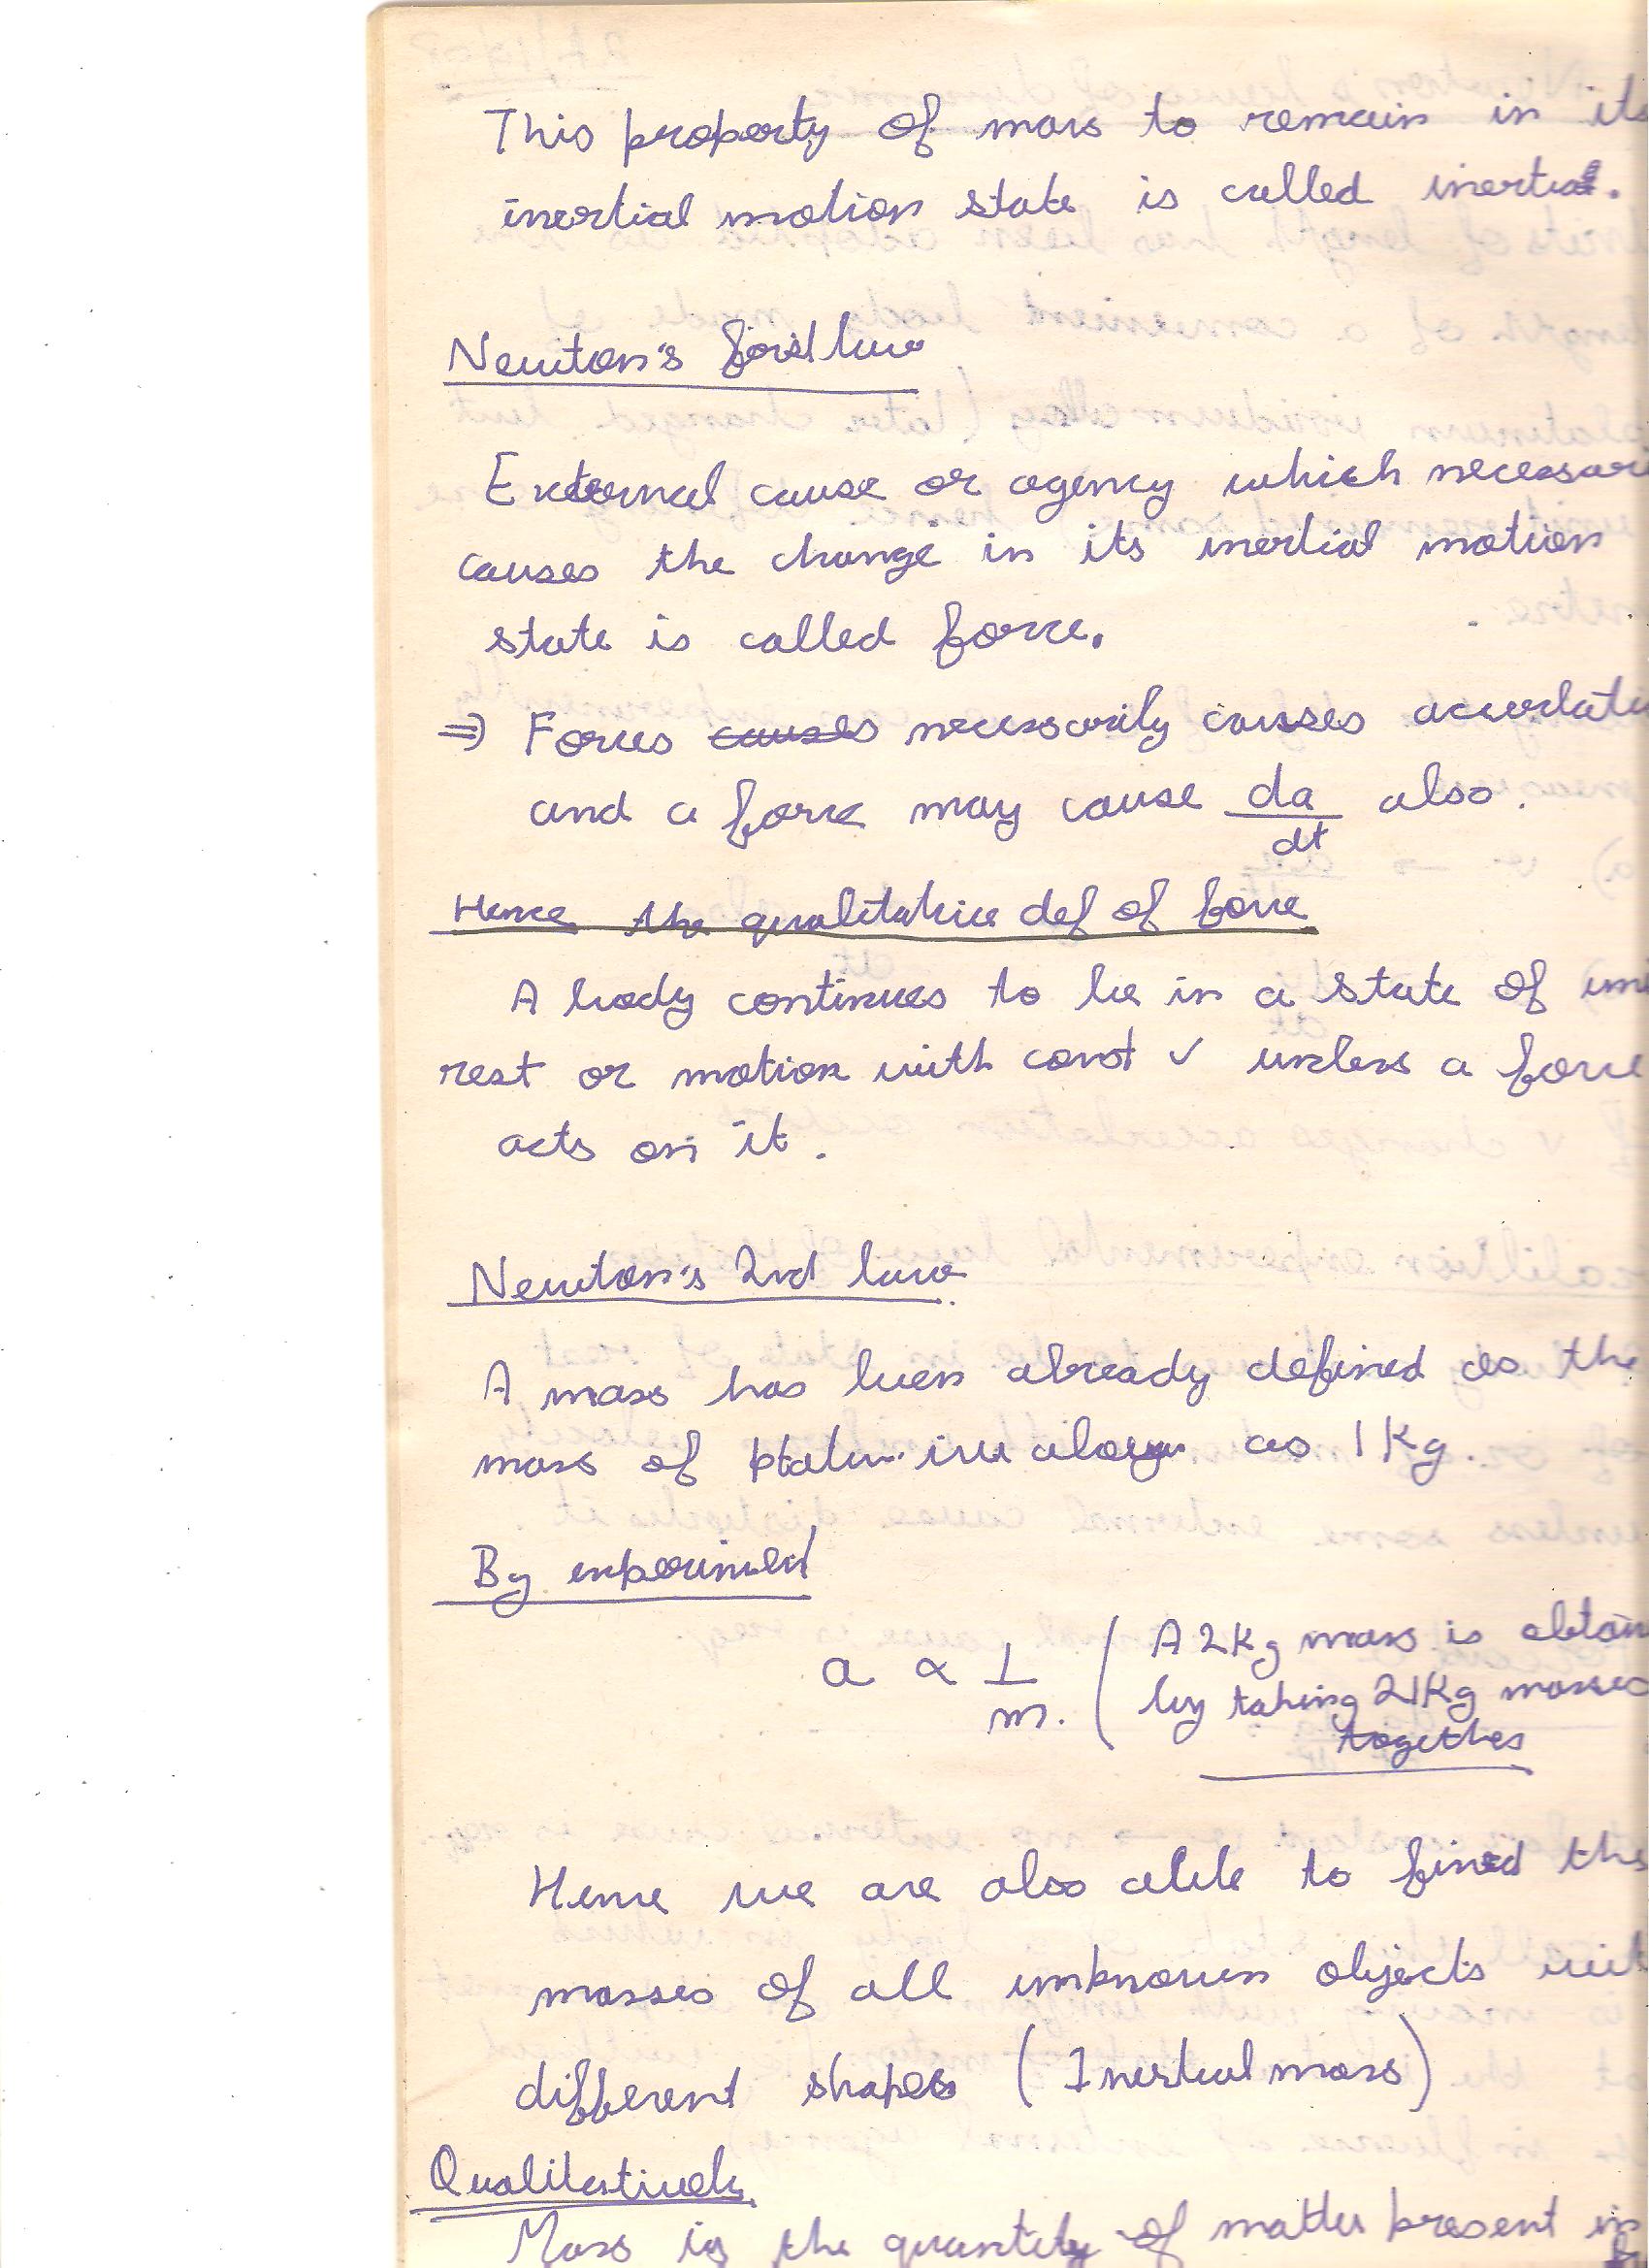 This property of mass to remain in its
inertial motion state is called inertia.
Newton's first law
External cause or agency which necessari
causes the change in its inertial motion
state is called force.
⇒ Forces causes necessarily causes accerlati
and a force may cause da/dt also.
Hence the qualitative def of force
A body continues to be in a state of
rest or motion with const v unless a force
acts on it.
Newton's 2nd law
A mass has been already defined as the
mass of as 1 Kg.
By experiment
a ∝ 1/m. (A 2Kg mass is obtain
by taking 2 1Kg masses
together
Hence we are also able to fined the
masses of all unknown objects wit
different shapes (Inertial mass)
Qualitatively
Mass is the quantity of matter present in